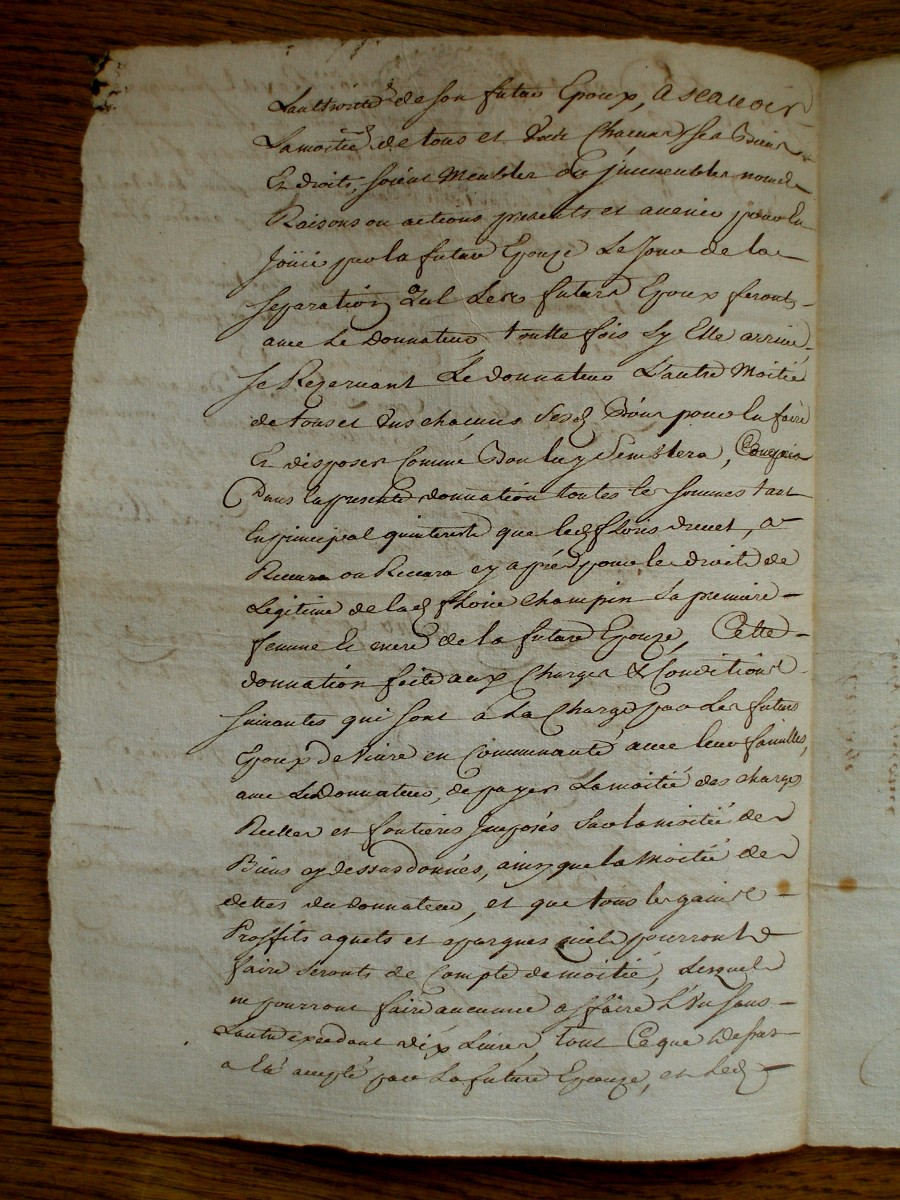 Lauthorité de son futur Epoux, a scauoir
La moitié de tous et uns Chacuns ses Biens
Et droits, soient Meubles ou jmmeubles noms
Raisons ou actions presents et auenir pour en
Joüir par la future Epouze Le Jour de la
separation quil Les futurs Epoux feront
auec Le Donnateur, toutte fois sy Elle arriue
se Rezeruant Le donnateur L'autre Moitié
de tous et uns chacuns sesd Biens pour en faire
Et disposer Comme Bon luy Semblera, Compris
Dans la presente donnation toutes les sommes tant
En principal quinterets que led floris druet, a
Receu ou Receura cy apres pour le droit de
Legitime de lad floric champin sa premiere
femme Et mere de la future Epouze, Cette
donnation faite aux Charges & Conditions
suiuantes qui sont a La Charge par Les futurs
Epoux de Viure en Communauté auec leur familles,
auec Le Donnateur, de payer La moitié des charges
Reelles et fontieres jmposés sur la moitié des
Biens cy dessus donnés, ainsy que la Moitié des
dettes du donnateur, et que tous les gains
Proffits aquets et epargnes quils pourront
faire seronts de Compte de moitié, Lesquels
ne pourront faire aucune affaire L'un sans
Lautre exedant dix Liures, tout Ce que Dessus
a eté accepté par La future Epouze, et Led